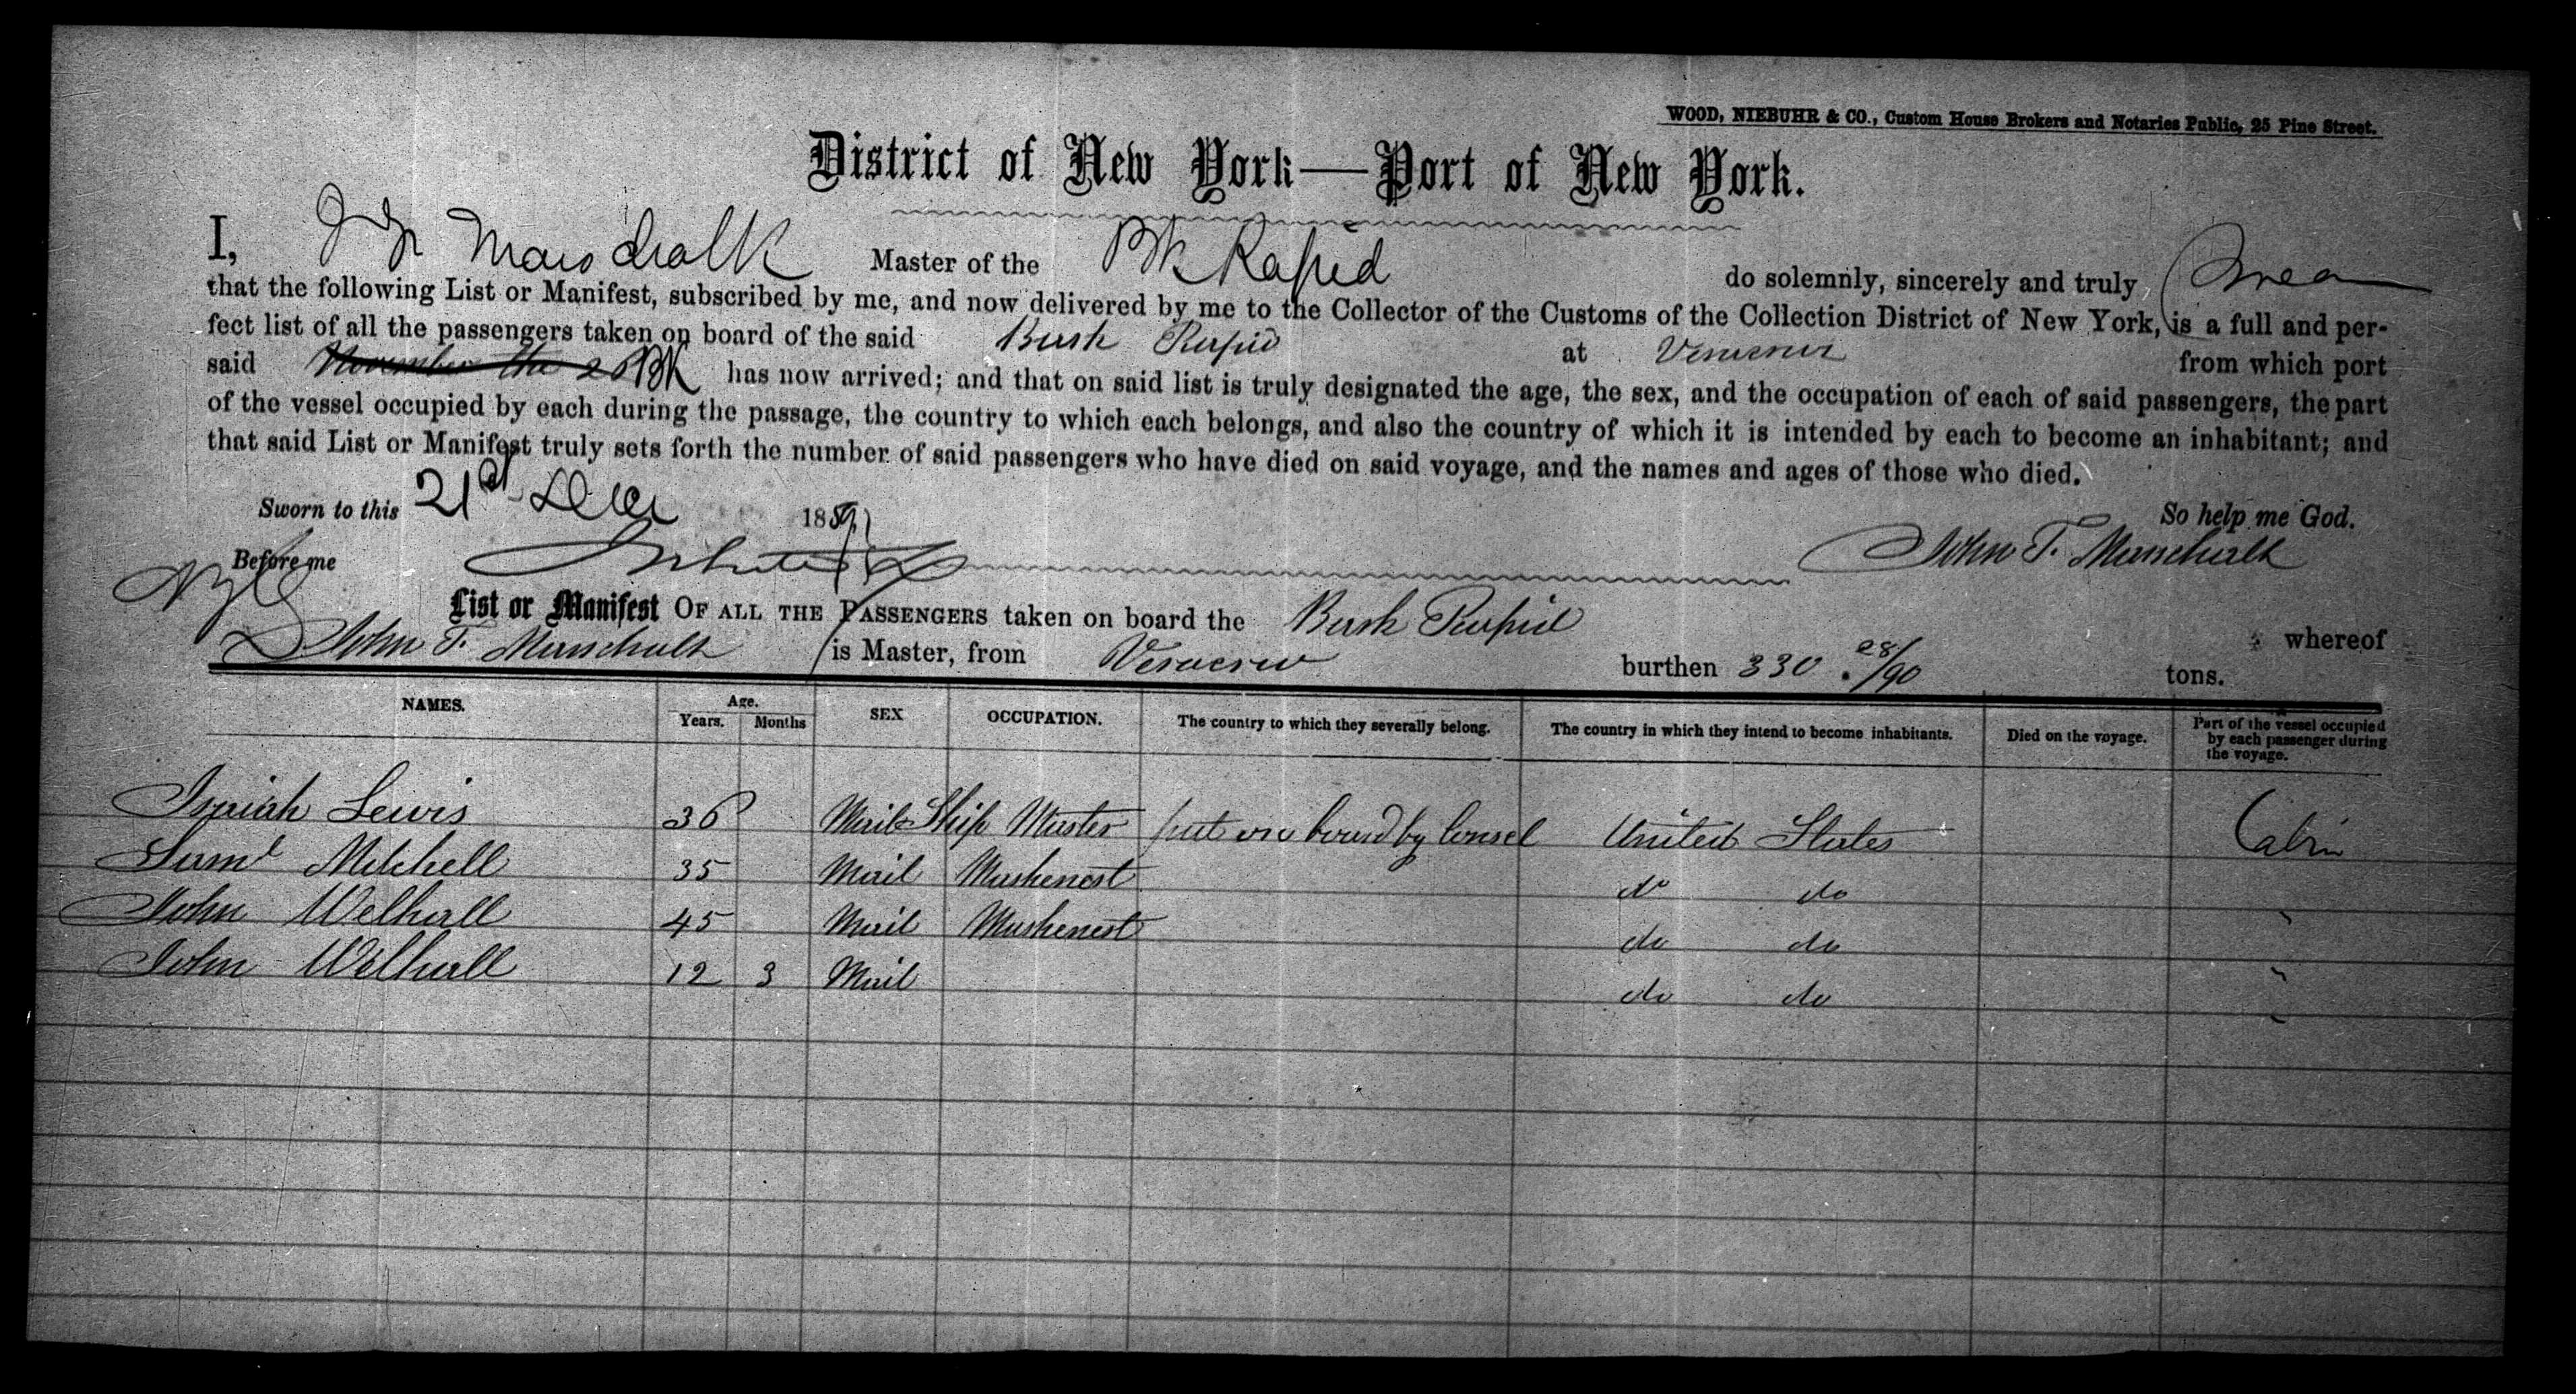 WOOD, NIEBUHR & CO., Custom House Brokers and Notaries Public, 25 Pine Street.
District of New York—Port of New York.
I, Marschalk Master of the Bk Rapid do solemnly, sincerely and truly swear
that the following List or Manifest, subscribed by me, and now delivered by me to the Collector of the Customs of the Collection District of New York, is a full and per-
fect list of all the passengers taken on board of the said Bark Rapid at Veracruz from which port
said November the 20 Bk has now arrived; and that on said list is truly designated the age, the sex, and the occupation of each of said passengers, the part
of the vessel occupied by each during the passage, the country to which each belongs, and also the country of which it is intended by each to become an inhabitant; and
that said List or Manifest truly sets forth the number of said passengers who have died on said voyage, and the names and ages of those who died.
So help me God.
Sworn to this 21st Decr 1859
Before me
John T. Marschalk
List or Manifest OF ALL THE PASSENGERS taken on board the Bark Rapid whereof
John T. Marschalk is Master, from Veracruz burthen 330 28/90 tons.
NAMES. Age. Years. Months SEX OCCUPATION. The country to which they severally belong. The country in which they intend to become inhabitants. Died on the voyage. Part of the vessel occupied by each passenger during the voyage.
Isaiah Lewis 36 Mail Ship Master put on bourd by Consel United States Cabin
Saml Mitchell 35 Mail Mashenest do do "
John Welhall 45 Mail Mashenest do do "
John Welhall 12 3 Mail do do "